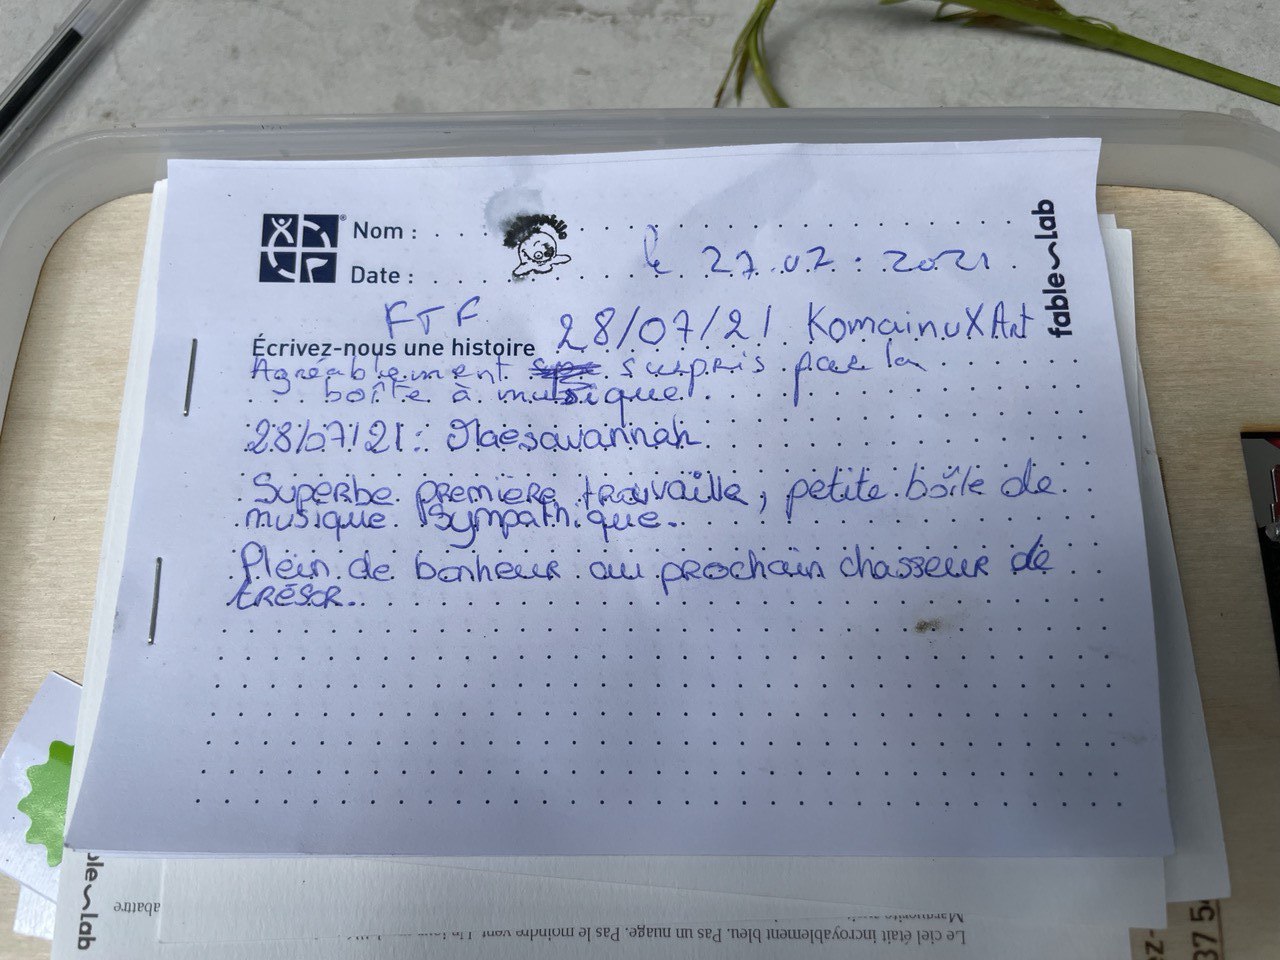 Nom :
le 27.07.2021
Date :
FTF
28/07/21 KomainuXArt
Écrivez-nous une histoire
Agréablement surpris par la
boîte à musique
28/07/21 : Maesavannah
Superbe première trouvaille, petite boîte de
musique sympathique.
Plein de bonheur au prochain chasseur de
trésor.
fable~lab
ble~lab
abattre
Le ciel était incroyablement bleu. Pas un nuage. Pas le moindre vent.
37 5
ez-